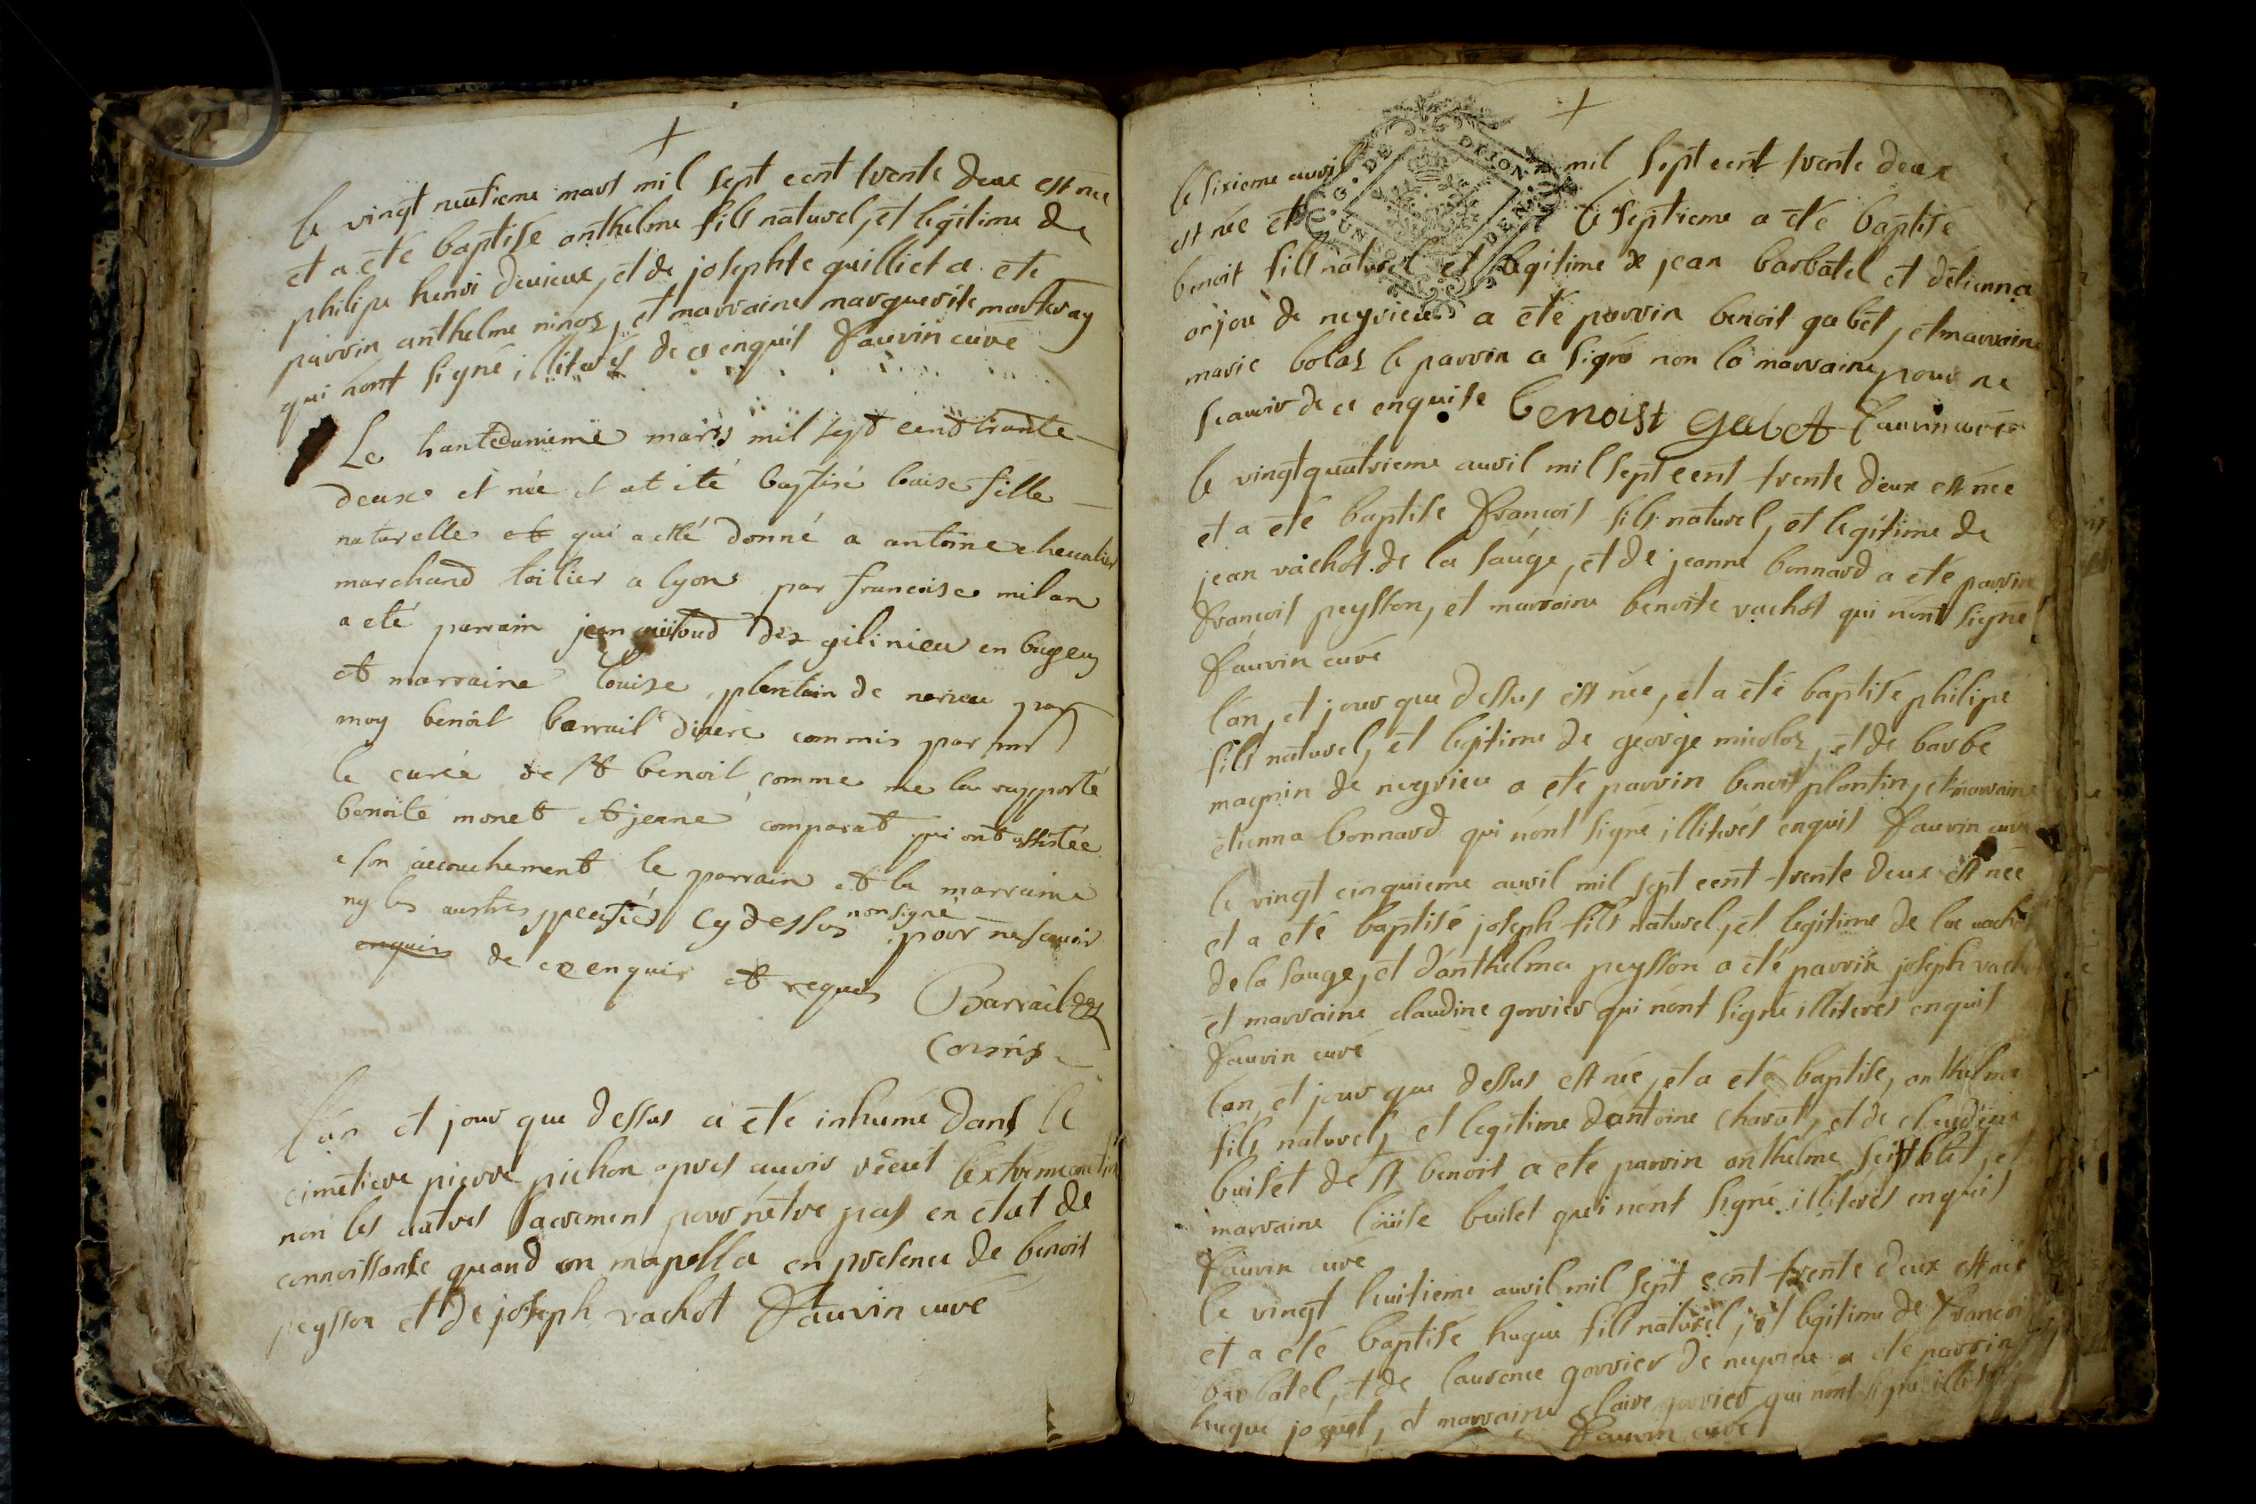 le vingt neufieme mars mil sept cent trente deux est née
et a eté baptisé anthelme fils naturel, et legitime de
philipe henri devieux, et de josephte guilliet a eté
parrin anthelme ninoz, et marraine marguerite
qui n'ont signé illiterés de ce enquis fauvin curé
Le trante unieme mars mil sept cent trante
deux et née et at eté baptisé louise fille
naturelle et qui a eté donné a antoine chevalier
marchand toilier a lyon par francoise milan
a eté parrain jean guitoud dez gilinieu en bugey
et marraine louise plantain de nerieu par
moy benoit barrail vicere commis par mr
le curée de st benoit comme me la rapporté
benoite monet et jeane comparat qui ont assistée
a son accouchement le parrain et la marraine
ny les austres cy dessus non signé pour ne scavoir
enquis de ce enquis et requis Barrail
Comis
l'an et jour que dessus a eté inhumé dans le
cimetiere pierre pichon apres avoir recut l'extreme onction
non les autres sacrement pour n'etre pas en etat de
connoissance quand on m'apella en presence de benoit
peysson et de joseph vachot fauvin curé
le sixieme avril mil sept cent trente deux
est née et le septieme a eté baptisé
benoit fils naturel et legitime de jean barbatel et d'etienna
anjou de neyrieu a eté parrin benoit gabet, et marraine
marie bolaz le parrin a signé non la marraine pour ne
scavoir de ce enquise benoist gabet fauvin curé
le vingt quatrieme avril mil sept cent trente deux est née
et a eté baptisé francois fils naturel, et legitime de
jean vachot de la sauge, et de jeanne bonnard a eté parrin
francois peysson, et marraine benoite vachot qui n'ont signé
fauvin curé
l'an, et jour que dessus est née, et a eté baptisé philipe
fils naturel, et legitime de george micoloz, et de barbe
magnin de neyrieu a eté parrin benoit plantin, et marraine
etienna bonnard qui n'ont signé illiterés enquis fauvin curé
le vingt cinquieme avril mil sept cent trente deux est née
et a eté baptisé joseph fils naturel, et legitime de luc vachot
de la sauge, et d'anthelma peysson a eté parrin joseph vachot
et marraine claudine gorrier qui n'ont signé illiterés enquis
fauvin curé
l'an, et jour que dessus est née, et a eté baptisé, anthelme
fils naturel, et legitime d'antoine charat, et de claudine
buiset de st benoit a eté parrin anthelme, et
marraine louise buiset qui n'ont signé illiterés enquis
fauvin curé
le vingt huitieme avril mil sept cent trente deux est née
et a eté baptisé hugue fils naturel, et legitime de francois
barbatel, et de laurence gorrier de neyrieu a eté parrin
hugue joquet, et marraine claire gorrier qui n'ont signé illiterés
fauvin curé